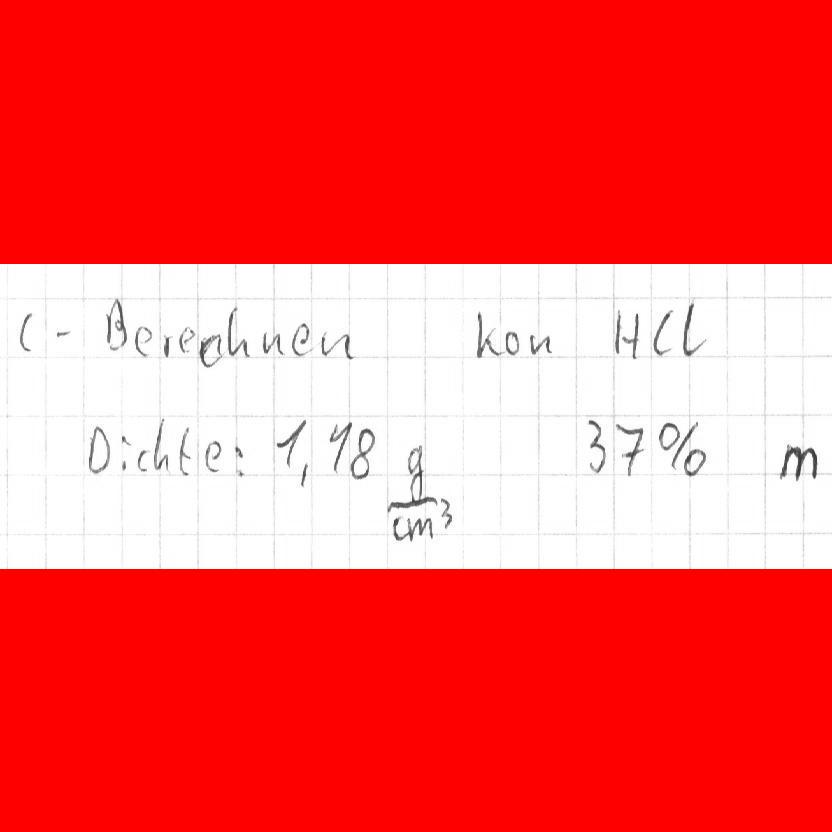 C - Berechnen kon HCl
Dichte: 1,18 g/cm³ 37% m